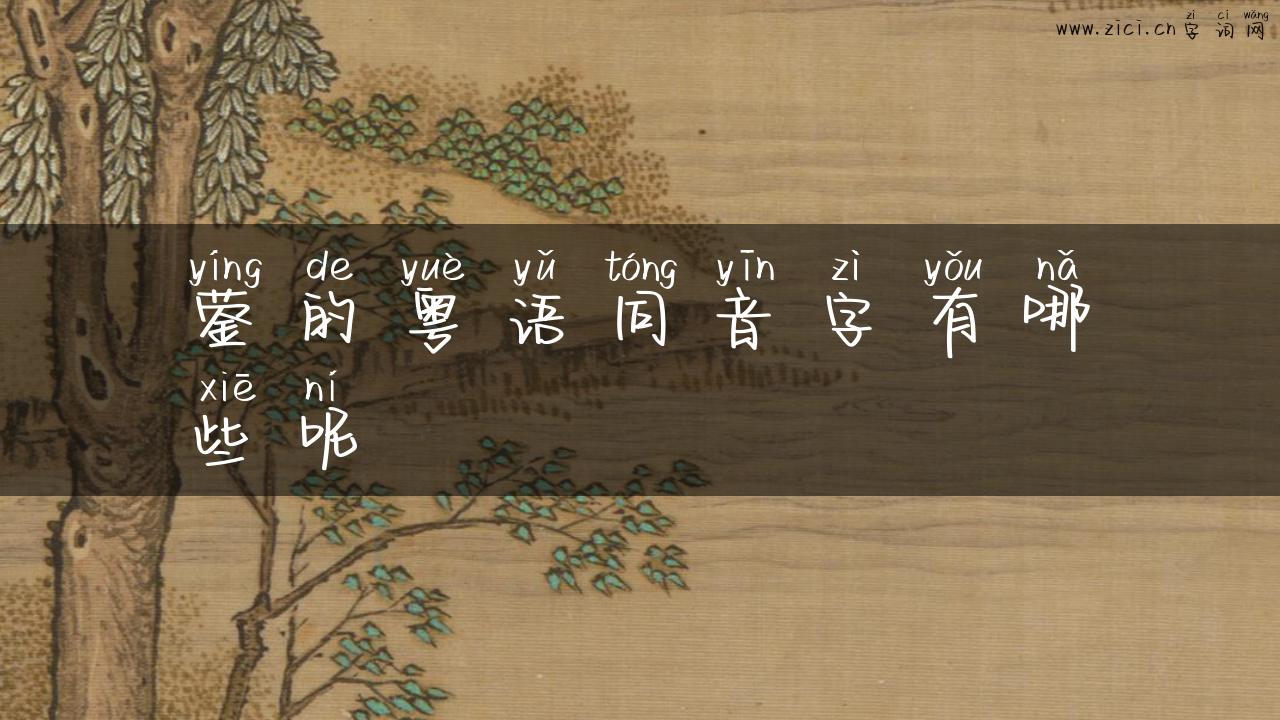 zì cí wǎng
www.zici.cn 字词网
yíng de yuè yǔ tóng yīn zì yǒu nǎ
蓥的粤语同音字有哪
xiē ní
些呢